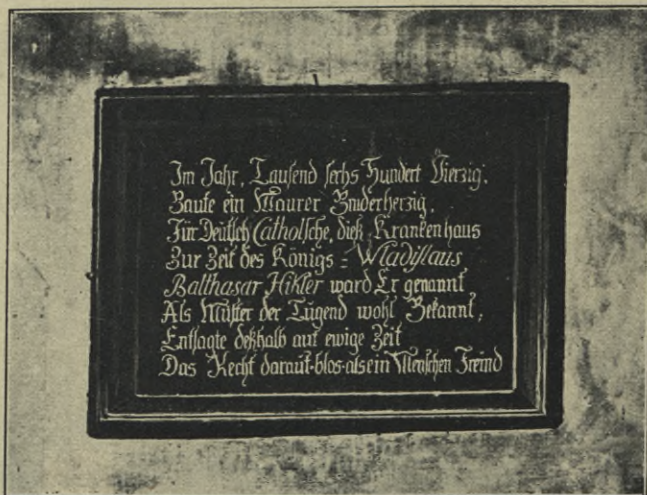 Im Jahr, Tausend sechs Hundert Vierzig,
Baute ein Maurer Bruderherzig,
Für Deütsch Catholsche, dieß Krankenhaus
Zur Zeit des Königs = Wladislaus
Balthasar Hikler ward Er genannt
Als Müster der Tugend wohl Bekannt,
Entsagte deßhalb auf ewige Zeit
Das Recht darauf-blos-als ein Menschen Freünd